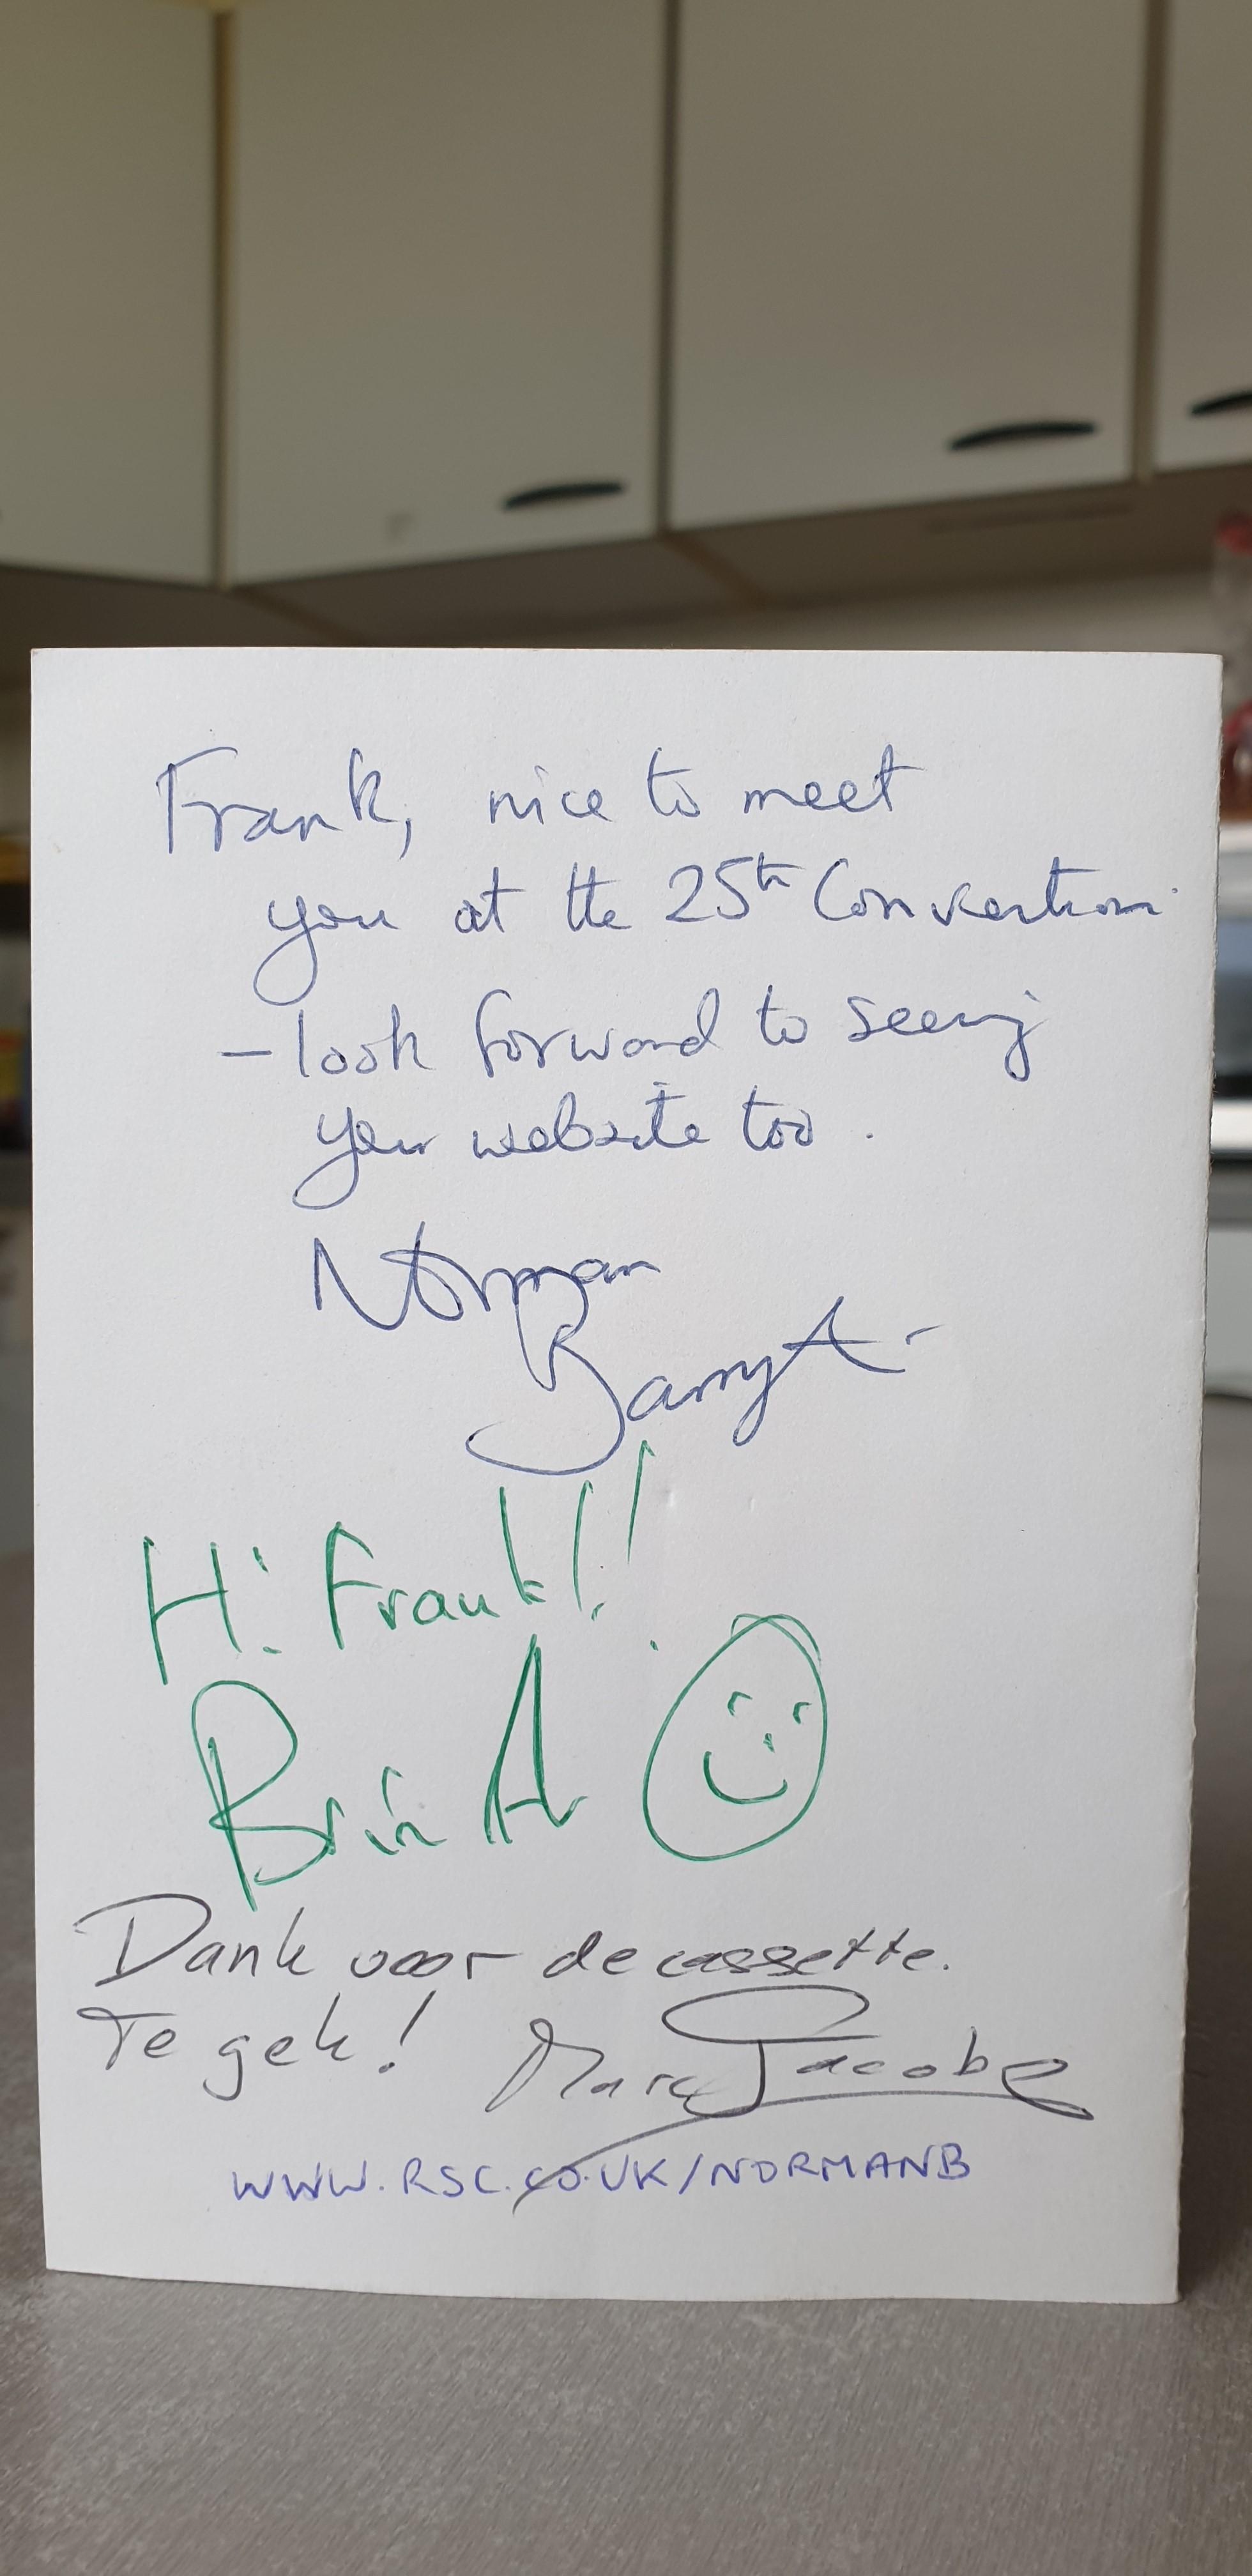 Frank, nice to meet
you at the 25th Convention
– look forward to seeing
your website too.
Norman
Barry
Hi Frank!!
Dank voor de cassette.
Te gek! Marc Jacobs
WWW.RSC.CO.UK/NORMANB